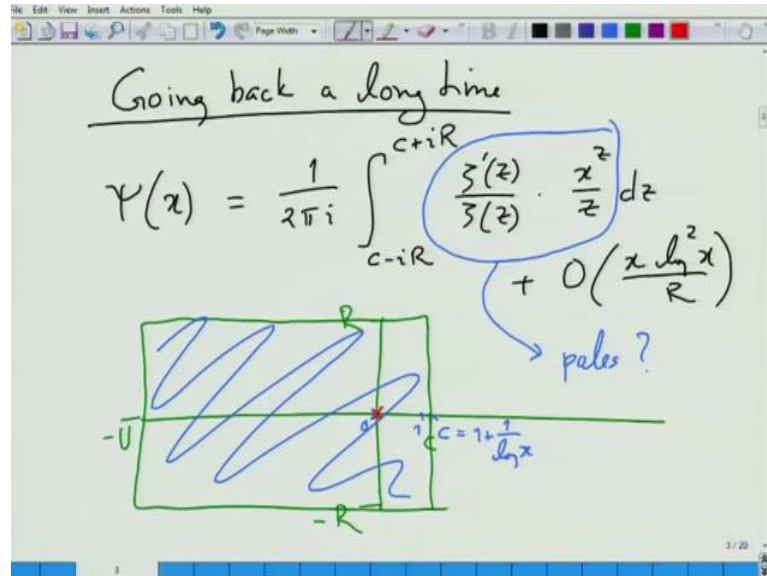 File Edit View Insert Actions Tools Help
Page Width
B I
Going back a long time
Ψ(x) = 1/2πi ∫_{c-iR}^{c+iR} ζ'(z)/ζ(z) · x^z/z dz
+ O(x log^2 x / R)
R
poles ?
-U 0 1 C C = 1 + 1/log x
-R
3 / 20
3